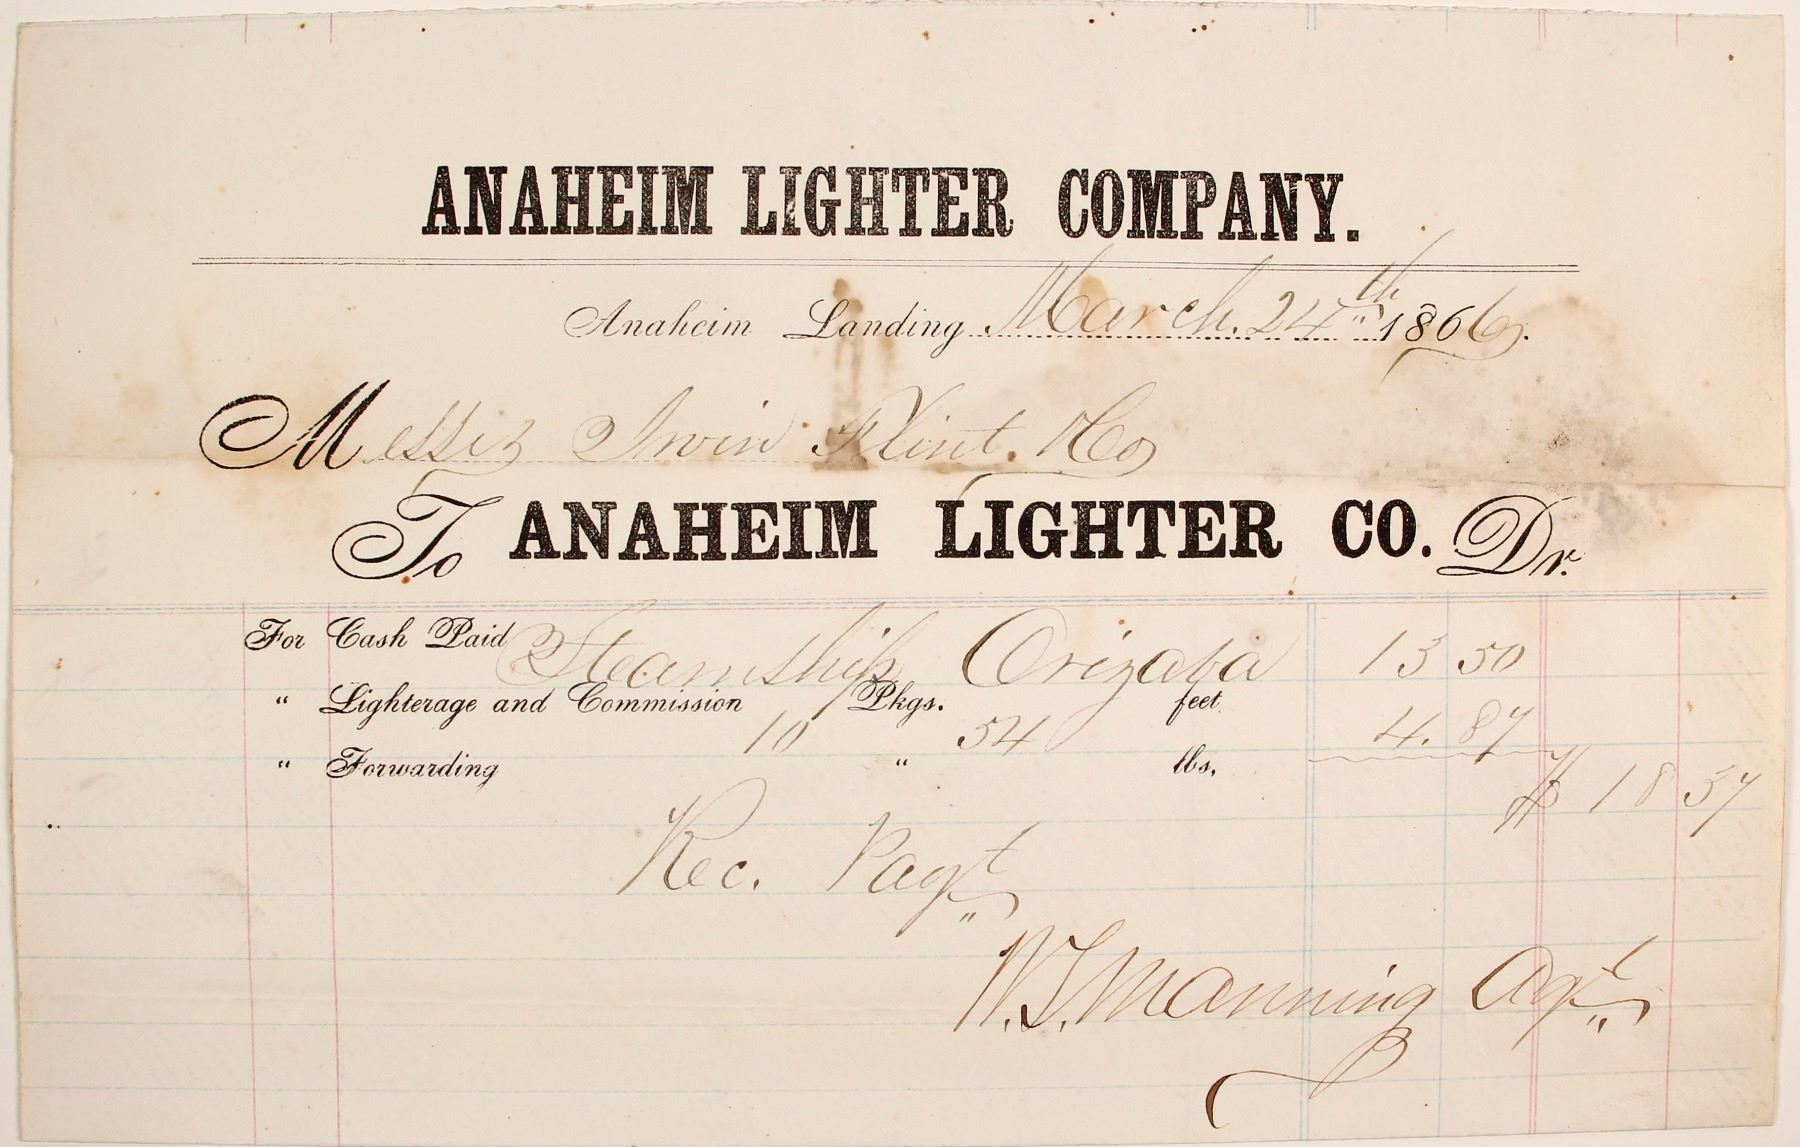 ANAHEIM LIGHTER COMPANY.
Anaheim Landing March. 24th 1866.
Messrs Irvin Flint. & Co
To ANAHEIM LIGHTER CO. Dr.
For Cash Paid Steamship Orizaba 13 50
" Lighterage and Commission 10 Pkgs. 54 feet 4. 87
" Forwarding " lbs.
$ 18 37
Rec. Payt
Manning Agt